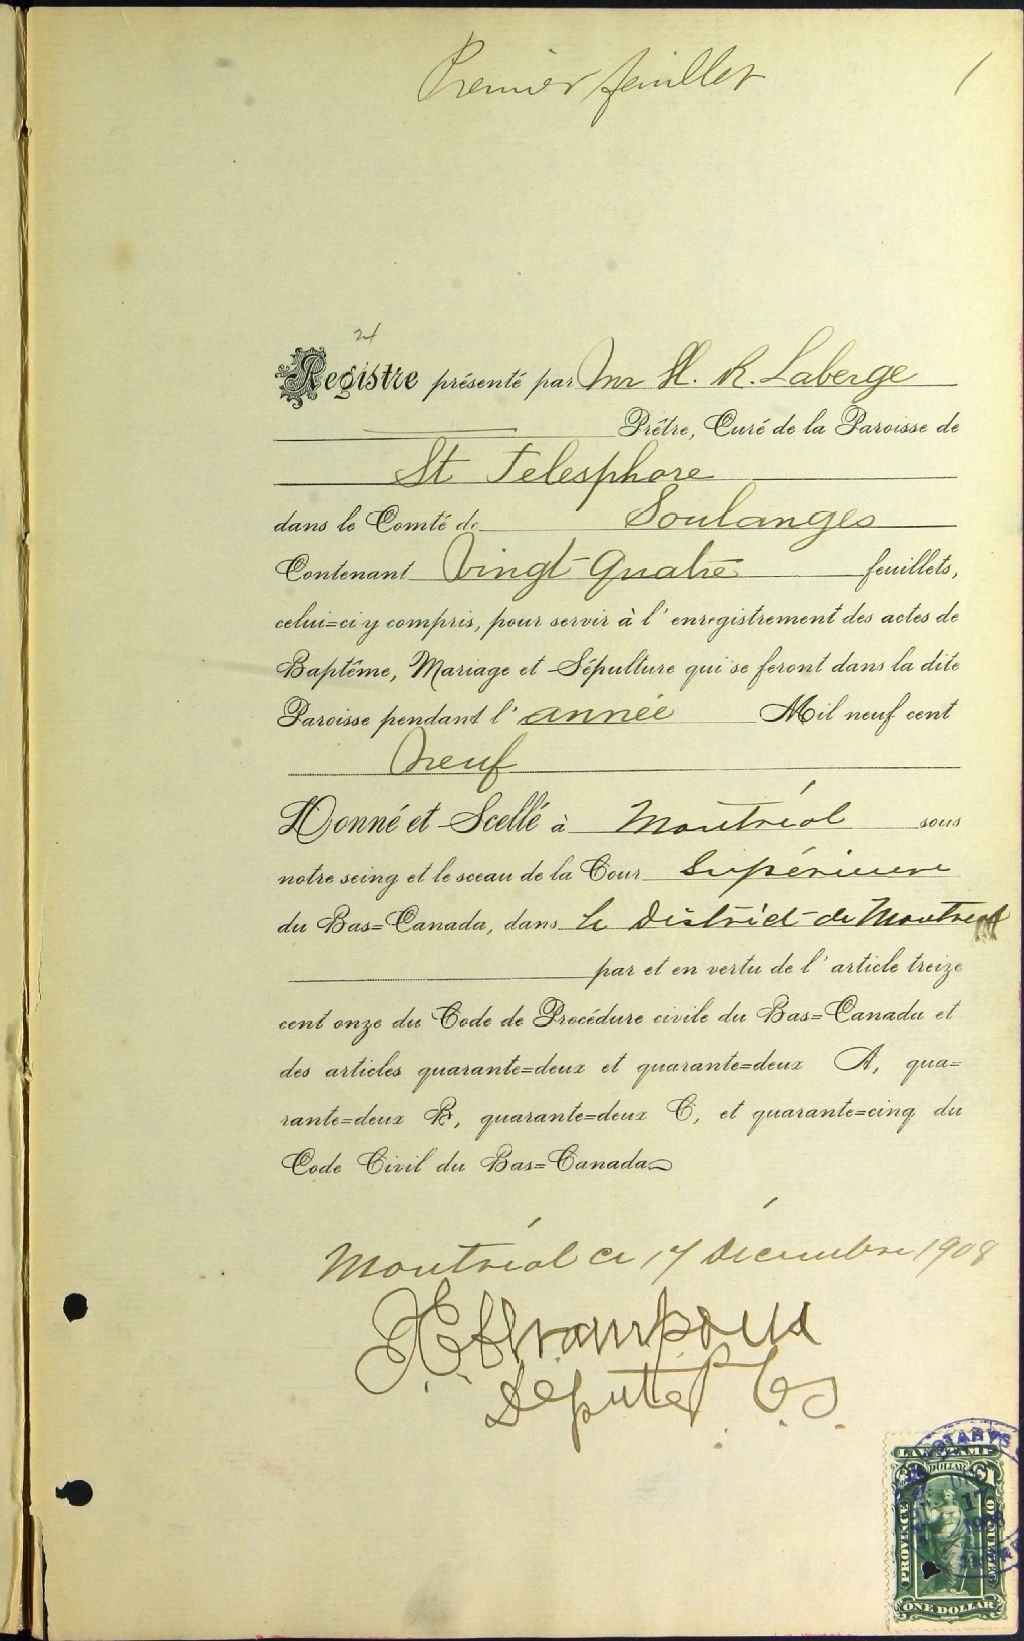 Premier feuillet
1
24
Registre présenté par Mr H. R. Laberge
Prêtre, Curé de la Paroisse de
St Telesphore
dans le Comté de Soulanges
Contenant Vingt-Quatre feuillets,
celui=ci y compris, pour servir à l'enregistrement des actes de
Baptême, Mariage et Sépulture qui se feront dans la dite
Paroisse pendant l'année Mil neuf cent
Neuf
Donné et Scellé à Montréal sous
notre seing et le sceau de la Cour Supérieure
du Bas=Canada, dans le District de Montreal
par et en vertu de l'article treize
cent onze du Code de Procédure civile du Bas=Canada et
des articles quarante=deux et quarante=deux A, qua=
rante=deux B, quarante=deux C, et quarante=cinq du
Code Civil du Bas=Canada
Montréal ce 17 Décembre 1908
Député P. C. S.
LAW STAMP
DOLLAR
PROVINCE
OF QUEBEC
17
ONE DOLLAR